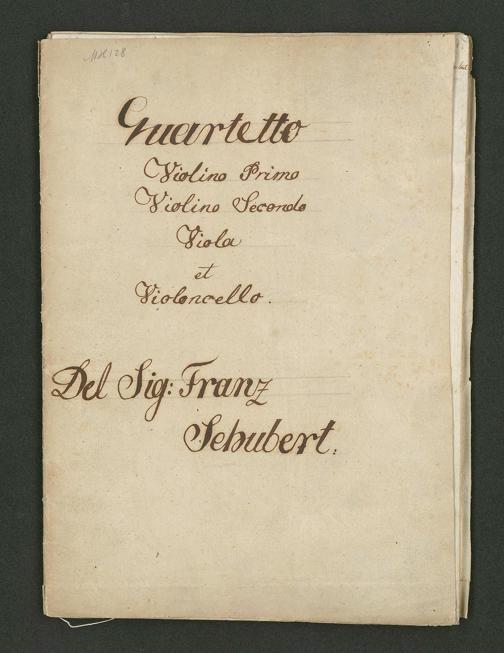 Quartetto
Violino Primo
Violino Secondo
Viola
et
Violoncello.
Del Sig: Franz
Schubert.